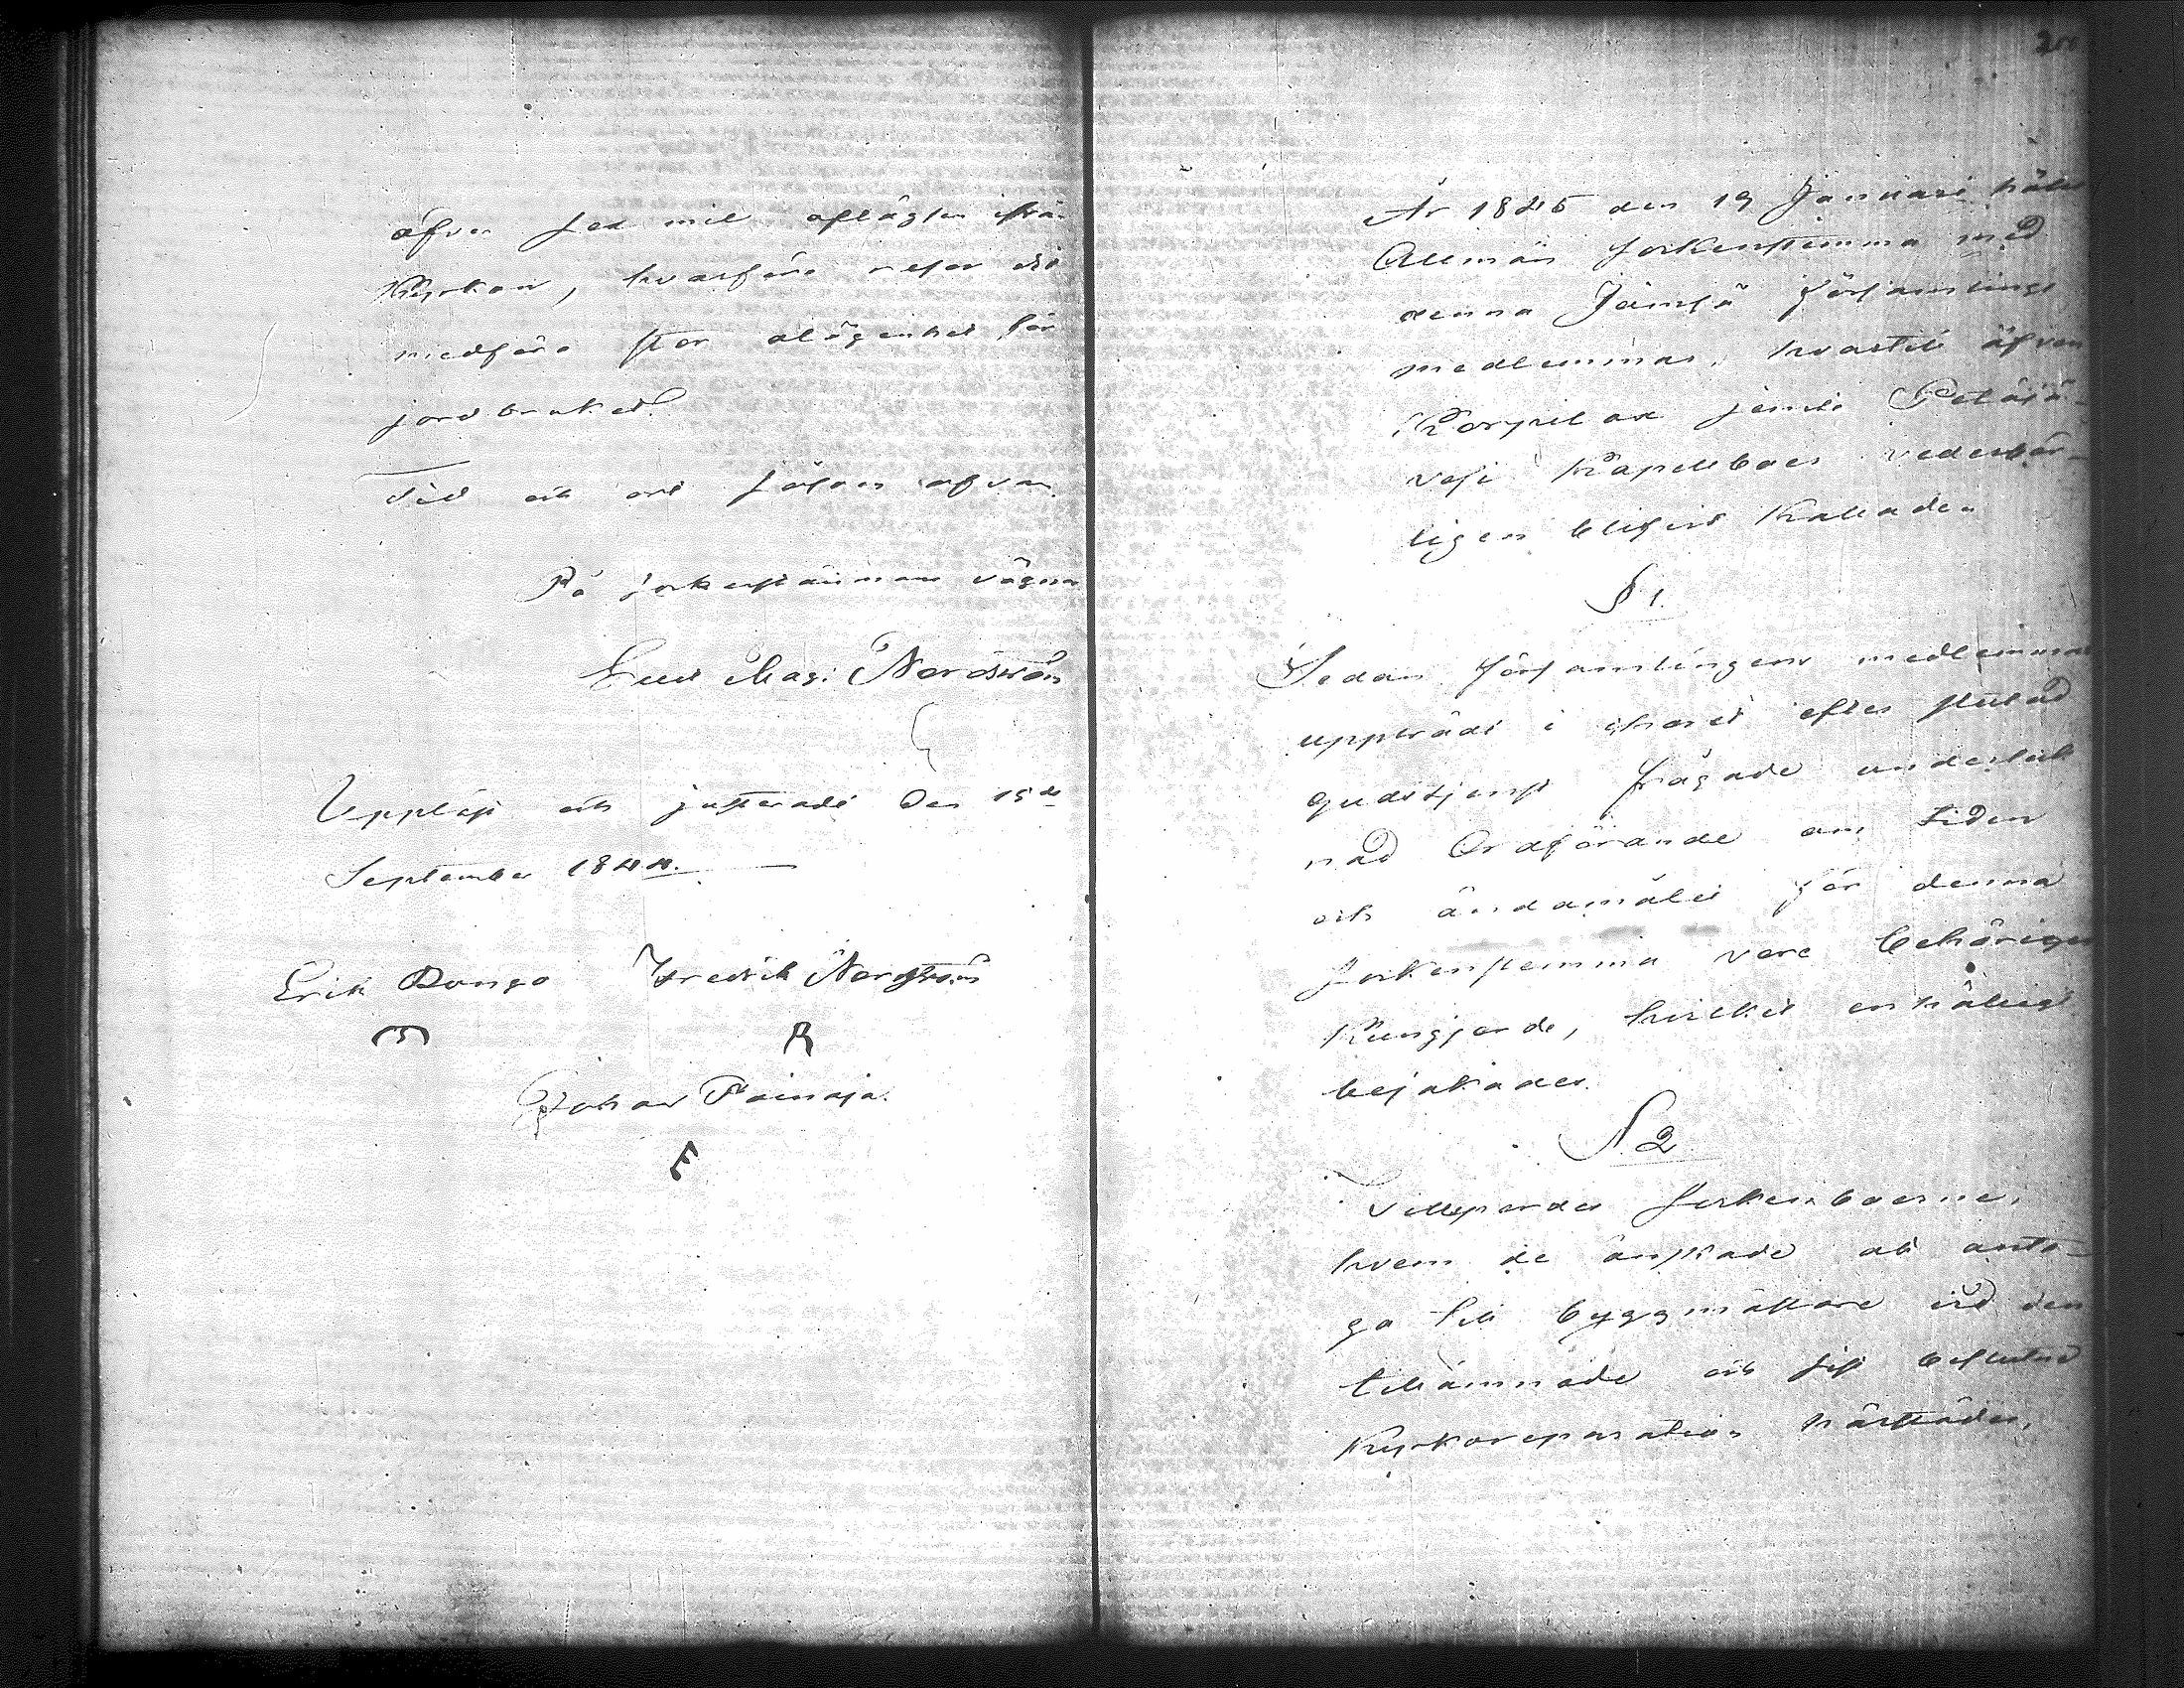 öfver sex mil aflägsen ifrån
Kyrkan, hvarföre resor dit
medföra stor olägenhet för
jordbruket.
Tid och ort såsom ofvan.
På sockenstämmans vägnar
Nordström
Uppläst och justeradt den 15de
September 1844.
Erik Fredrik Nordström
R
Johan Painaja.
E
200
År 1845 den 19 Januari hölls
Allmän Sockenstemma med
denna Jämsä församlings
medlemmar, hvartill äfven
Korpilax jemte Petäjä-
vesi Kapellboer vederbör-
ligen blifvit kallade.
§ 1.
Sedan församlingens medlemmar
uppträdt i choret efter slutad
gudstjenst frågade underteck-
nad Ordförande om tiden
och ändamålet för denna
sockenstemma vore behörigen
kungjorde, hvilket enhälligt
bejakades.
§. 2.
Tillspordes sockenboerne,
hvem de önskade att anta-
ga till byggmästare vid den
tillämnade och sist beslutne
Kyrkoreparation härstädes,